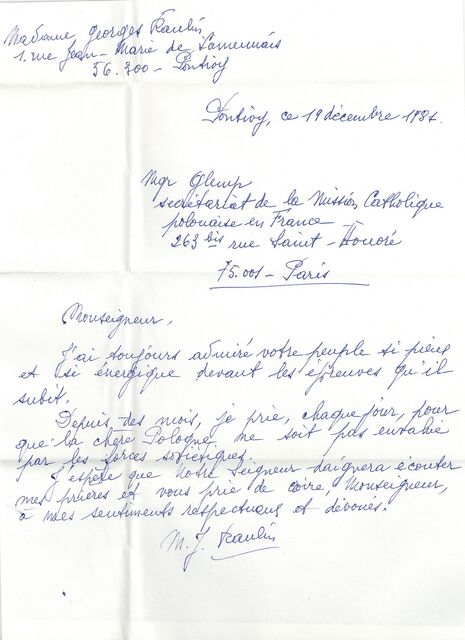 Madame Georges Raulin
1. rue Jean-Marie de Lamennais
56.300 - Pontivy
Pontivy, ce 19 décembre 1981.
Mgr Glemp
secrétariat de la Mission Catholique
polonaise en France
263 bis rue Saint-Honoré
75.001 - Paris
Monseigneur,
J'ai toujours admiré votre peuple si pieux
et si énergique devant les épreuves qu'il
subit.
Depuis des mois, je prie, chaque jour, pour
que la chère Pologne ne soit pas envahie
par les forces soviétiques.
J'espère que Notre Seigneur daignera écouter
mes prières et vous prie de croire, Monseigneur,
à mes sentiments respectueux et dévoués.
M. J. Raulin